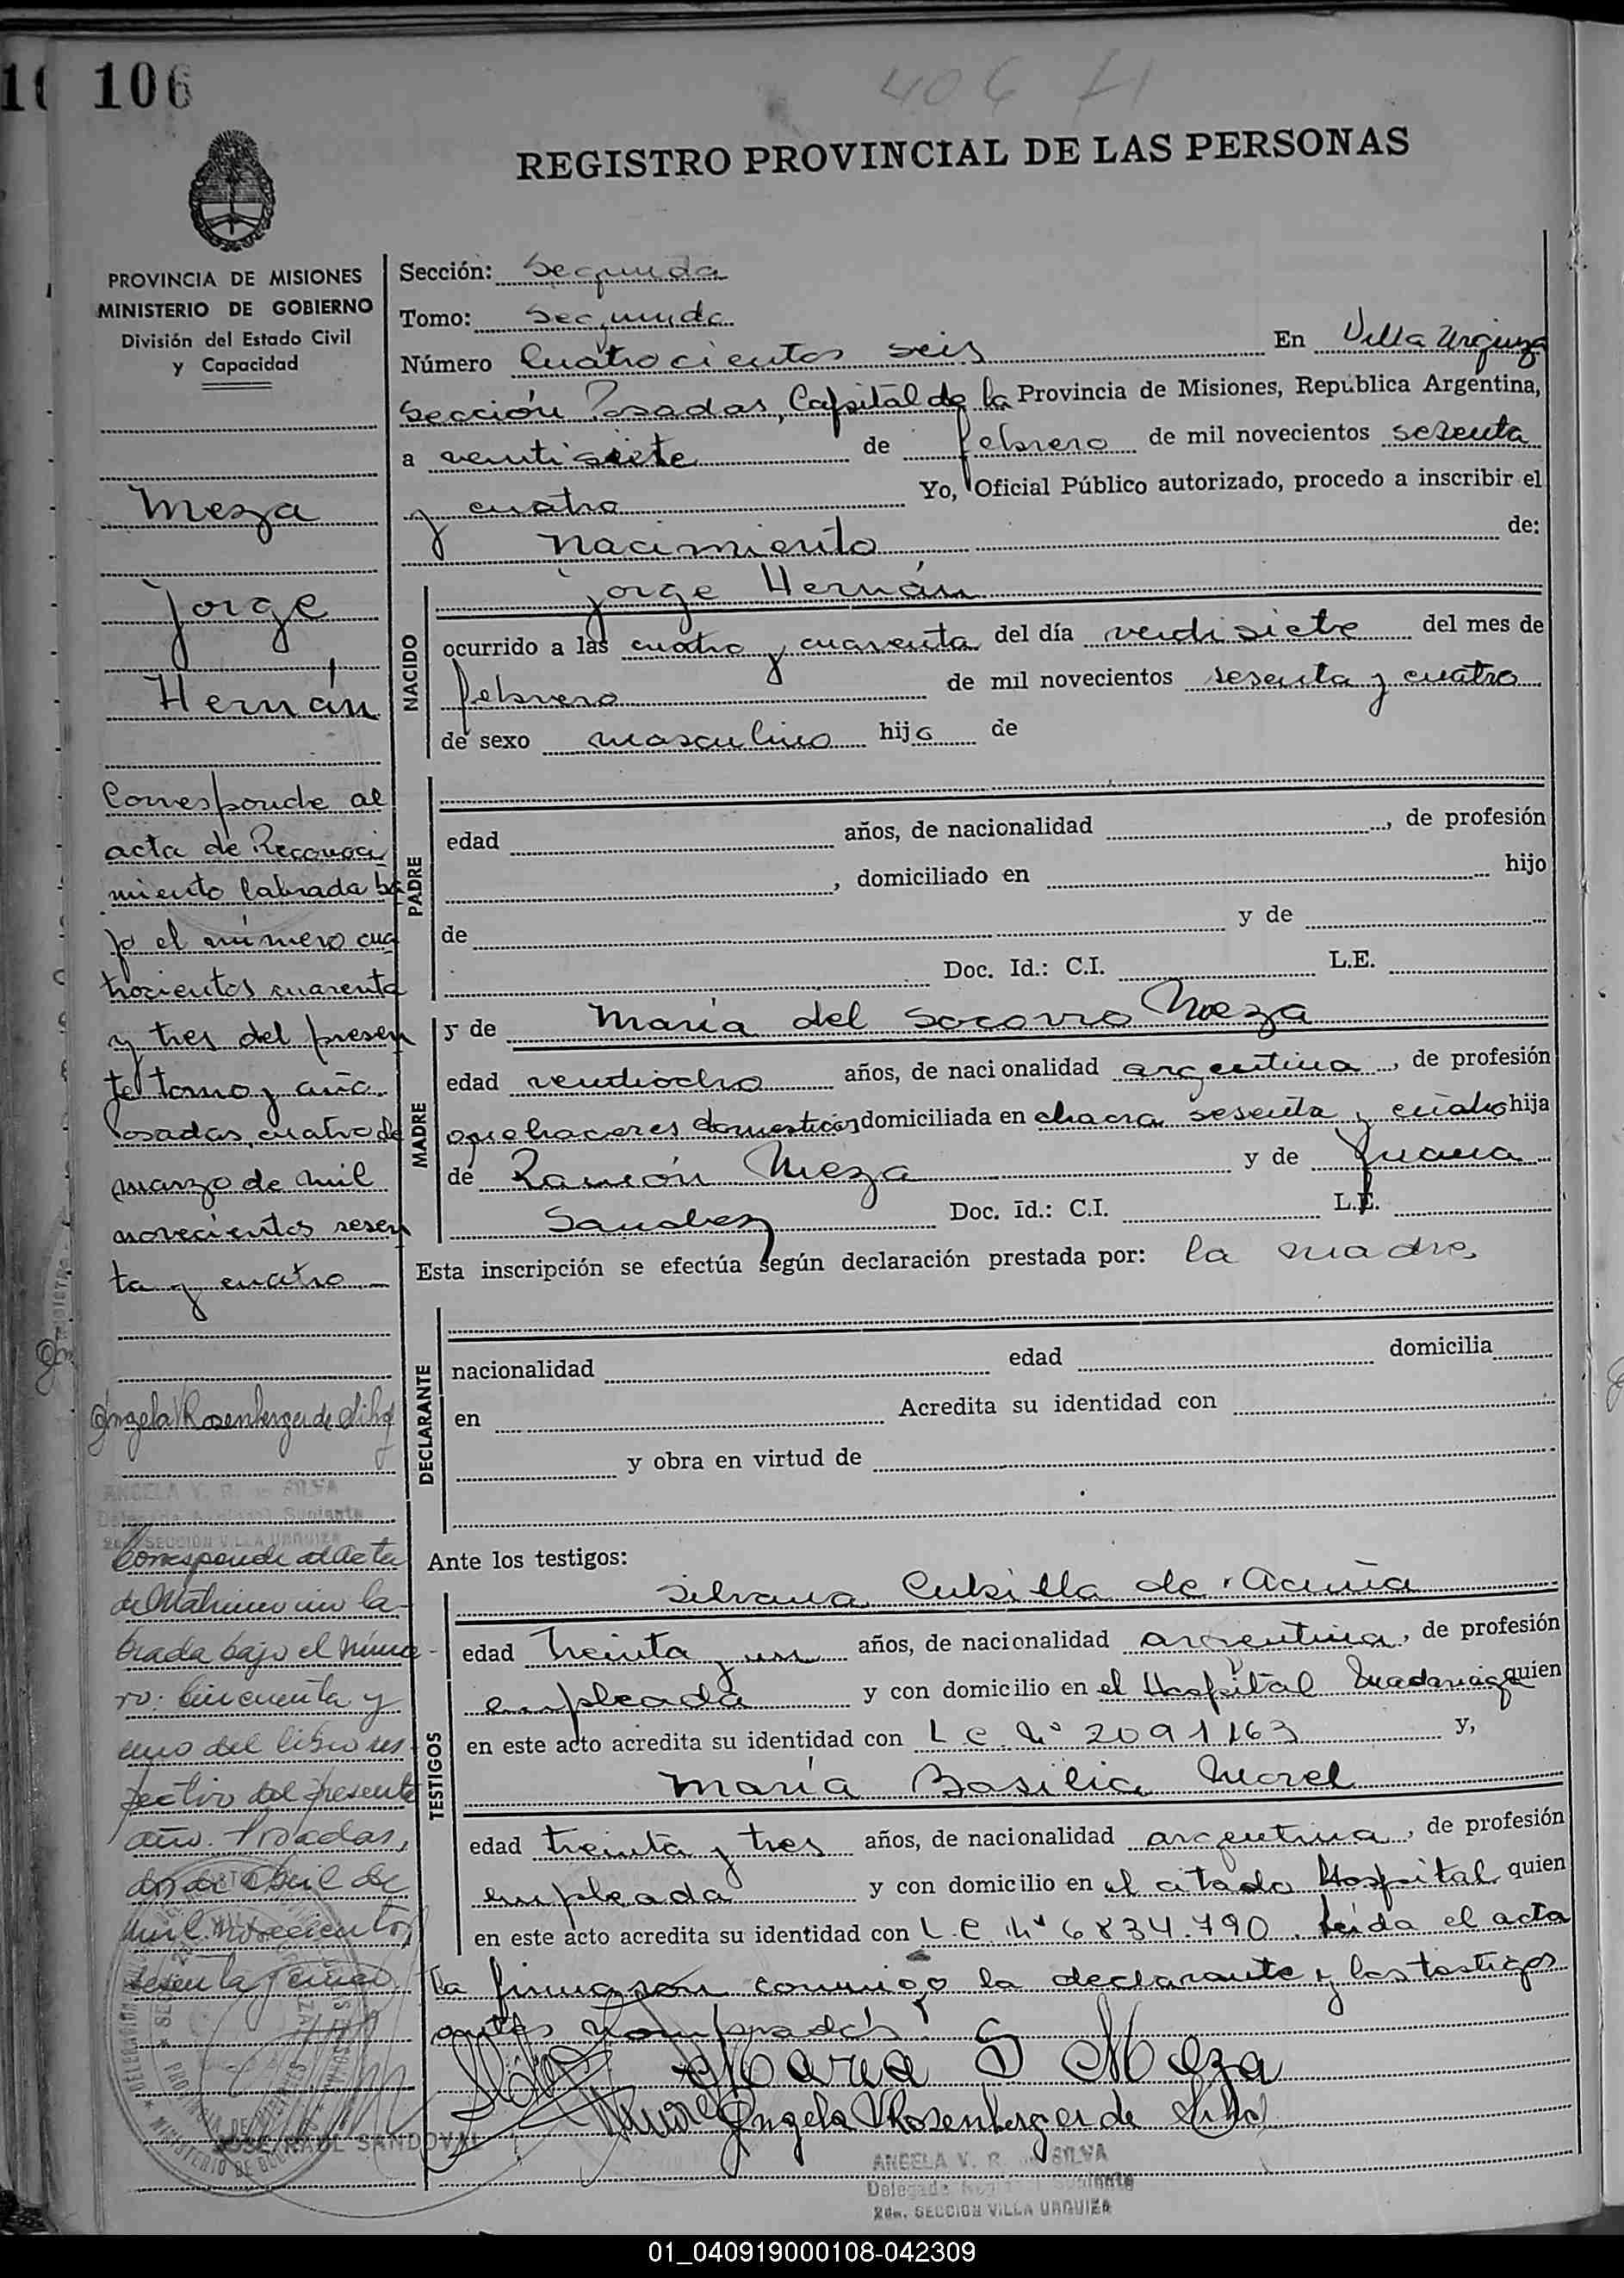 106
406 H
REGISTRO PROVINCIAL DE LAS PERSONAS
PROVINCIA DE MISIONES
MINISTERIO DE GOBIERNO
División del Estado Civil
y Capacidad
Meza
Jorge
Hernán
Corresponde al
acta de Reconoci
miento labrada ba
jo el número cua
trocientos cuarenta
y tres del presen
te tomo y año.
Posadas, cuatro de
marzo de mil
novecientos sesen
ta y cuatro
Angela V Rosenberger de Silva
ANGELA V. R. de SILVA
Delegada Regional Suplente
2da. SECCIÓN VILLA URQUIZA
Corresponde al acta
de Matrimonio la-
brada bajo el núme-
ro: cincuenta y
uno del libro res-
pectivo del presente
año. Posadas,
dos de abril de
mil novecientos
sesenta y cinco
JOSE RAUL SANDOVAL
Sección: Segunda
Tomo: Segundo
Número Cuatrocientos seis En Villa Urquiza
Sección Posadas, Capital de la Provincia de Misiones, República Argentina,
a ventisiete de febrero de mil novecientos sesenta
y cuatro Yo, Oficial Público autorizado, procedo a inscribir el
nacimiento de:
NACIDO
Jorge Hernán
ocurrido a las cuatro y cuarenta del día ventisiete del mes de
febrero de mil novecientos sesenta y cuatro
de sexo masculino hijo de
PADRE
edad años, de nacionalidad , de profesión
, domiciliado en hijo
de y de
Doc. Id.: C.I. L.E.
MADRE
y de María del Socorro Meza
edad ventiocho años, de nacionalidad argentina, de profesión
quehaceres domesticos domiciliada en chacra sesenta y cuatro hija
de Ramón Meza y de Juana
Sanchez Doc. Id.: C.I. L.E.
Esta inscripción se efectúa según declaración prestada por: la madre
DECLARANTE
nacionalidad edad domicilia
en Acredita su identidad con
y obra en virtud de
Ante los testigos:
TESTIGOS
Silvana Cubilla de Acuña
edad treinta y un años, de nacionalidad argentina, de profesión
empleada y con domicilio en el Hospital Madariaga quien
en este acto acredita su identidad con L C Nº 2091163 y,
María Basilia Morel
edad treinta y tres años, de nacionalidad argentina, de profesión
empleada y con domicilio en el citado Hospital quien
en este acto acredita su identidad con L.C. Nº 6834.790. Leída el acta
la firmaron conmigo la declarante y los testigos
antes nombrados.
Maria S Meza
Morel Angela V Rosenberger de Silva
ANGELA V. R. de SILVA
Delegada Regional Suplente
2da. SECCION VILLA URQUIZA
01_040919000108-042309